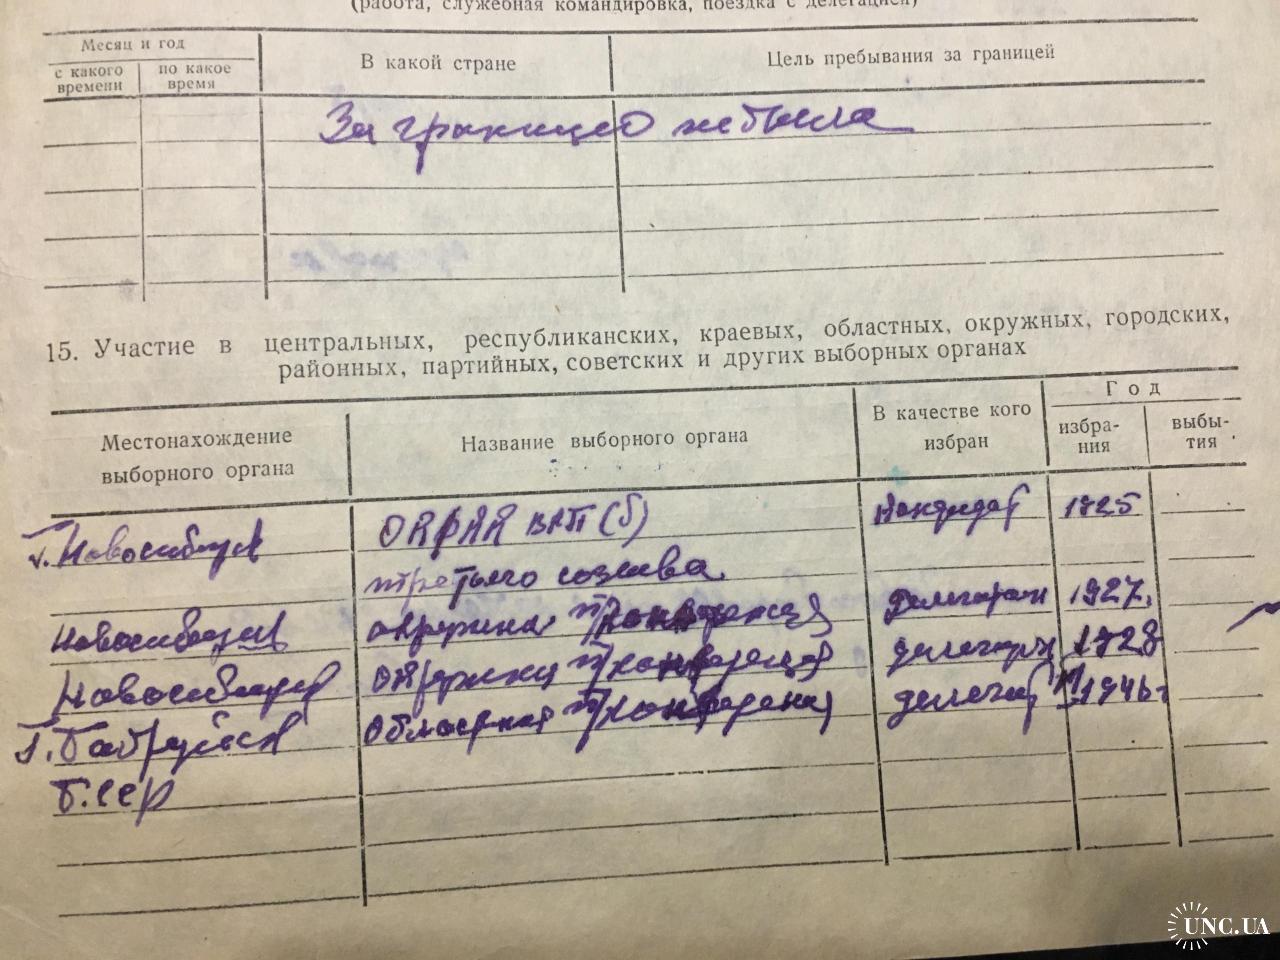 (работа, служебная командировка, поездка с делегацией)
Месяц и год
с какого времени
по какое время
В какой стране
Цель пребывания за границей
За границей не была
15. Участие в центральных, республиканских, краевых, областных, окружных, городских,
районных, партийных, советских и других выборных органах
Местонахождение
выборного органа
Название выборного органа
В качестве кого
избран
Год
избра-
ния
выбы-
тия
г. Новосибирск ВКП(б) кандидат 1925
третьего созыва
Новосибирск 1927.
Новосибирск 1928
г. Бобруйск делегат 1946 г
БССР
UNC.UA